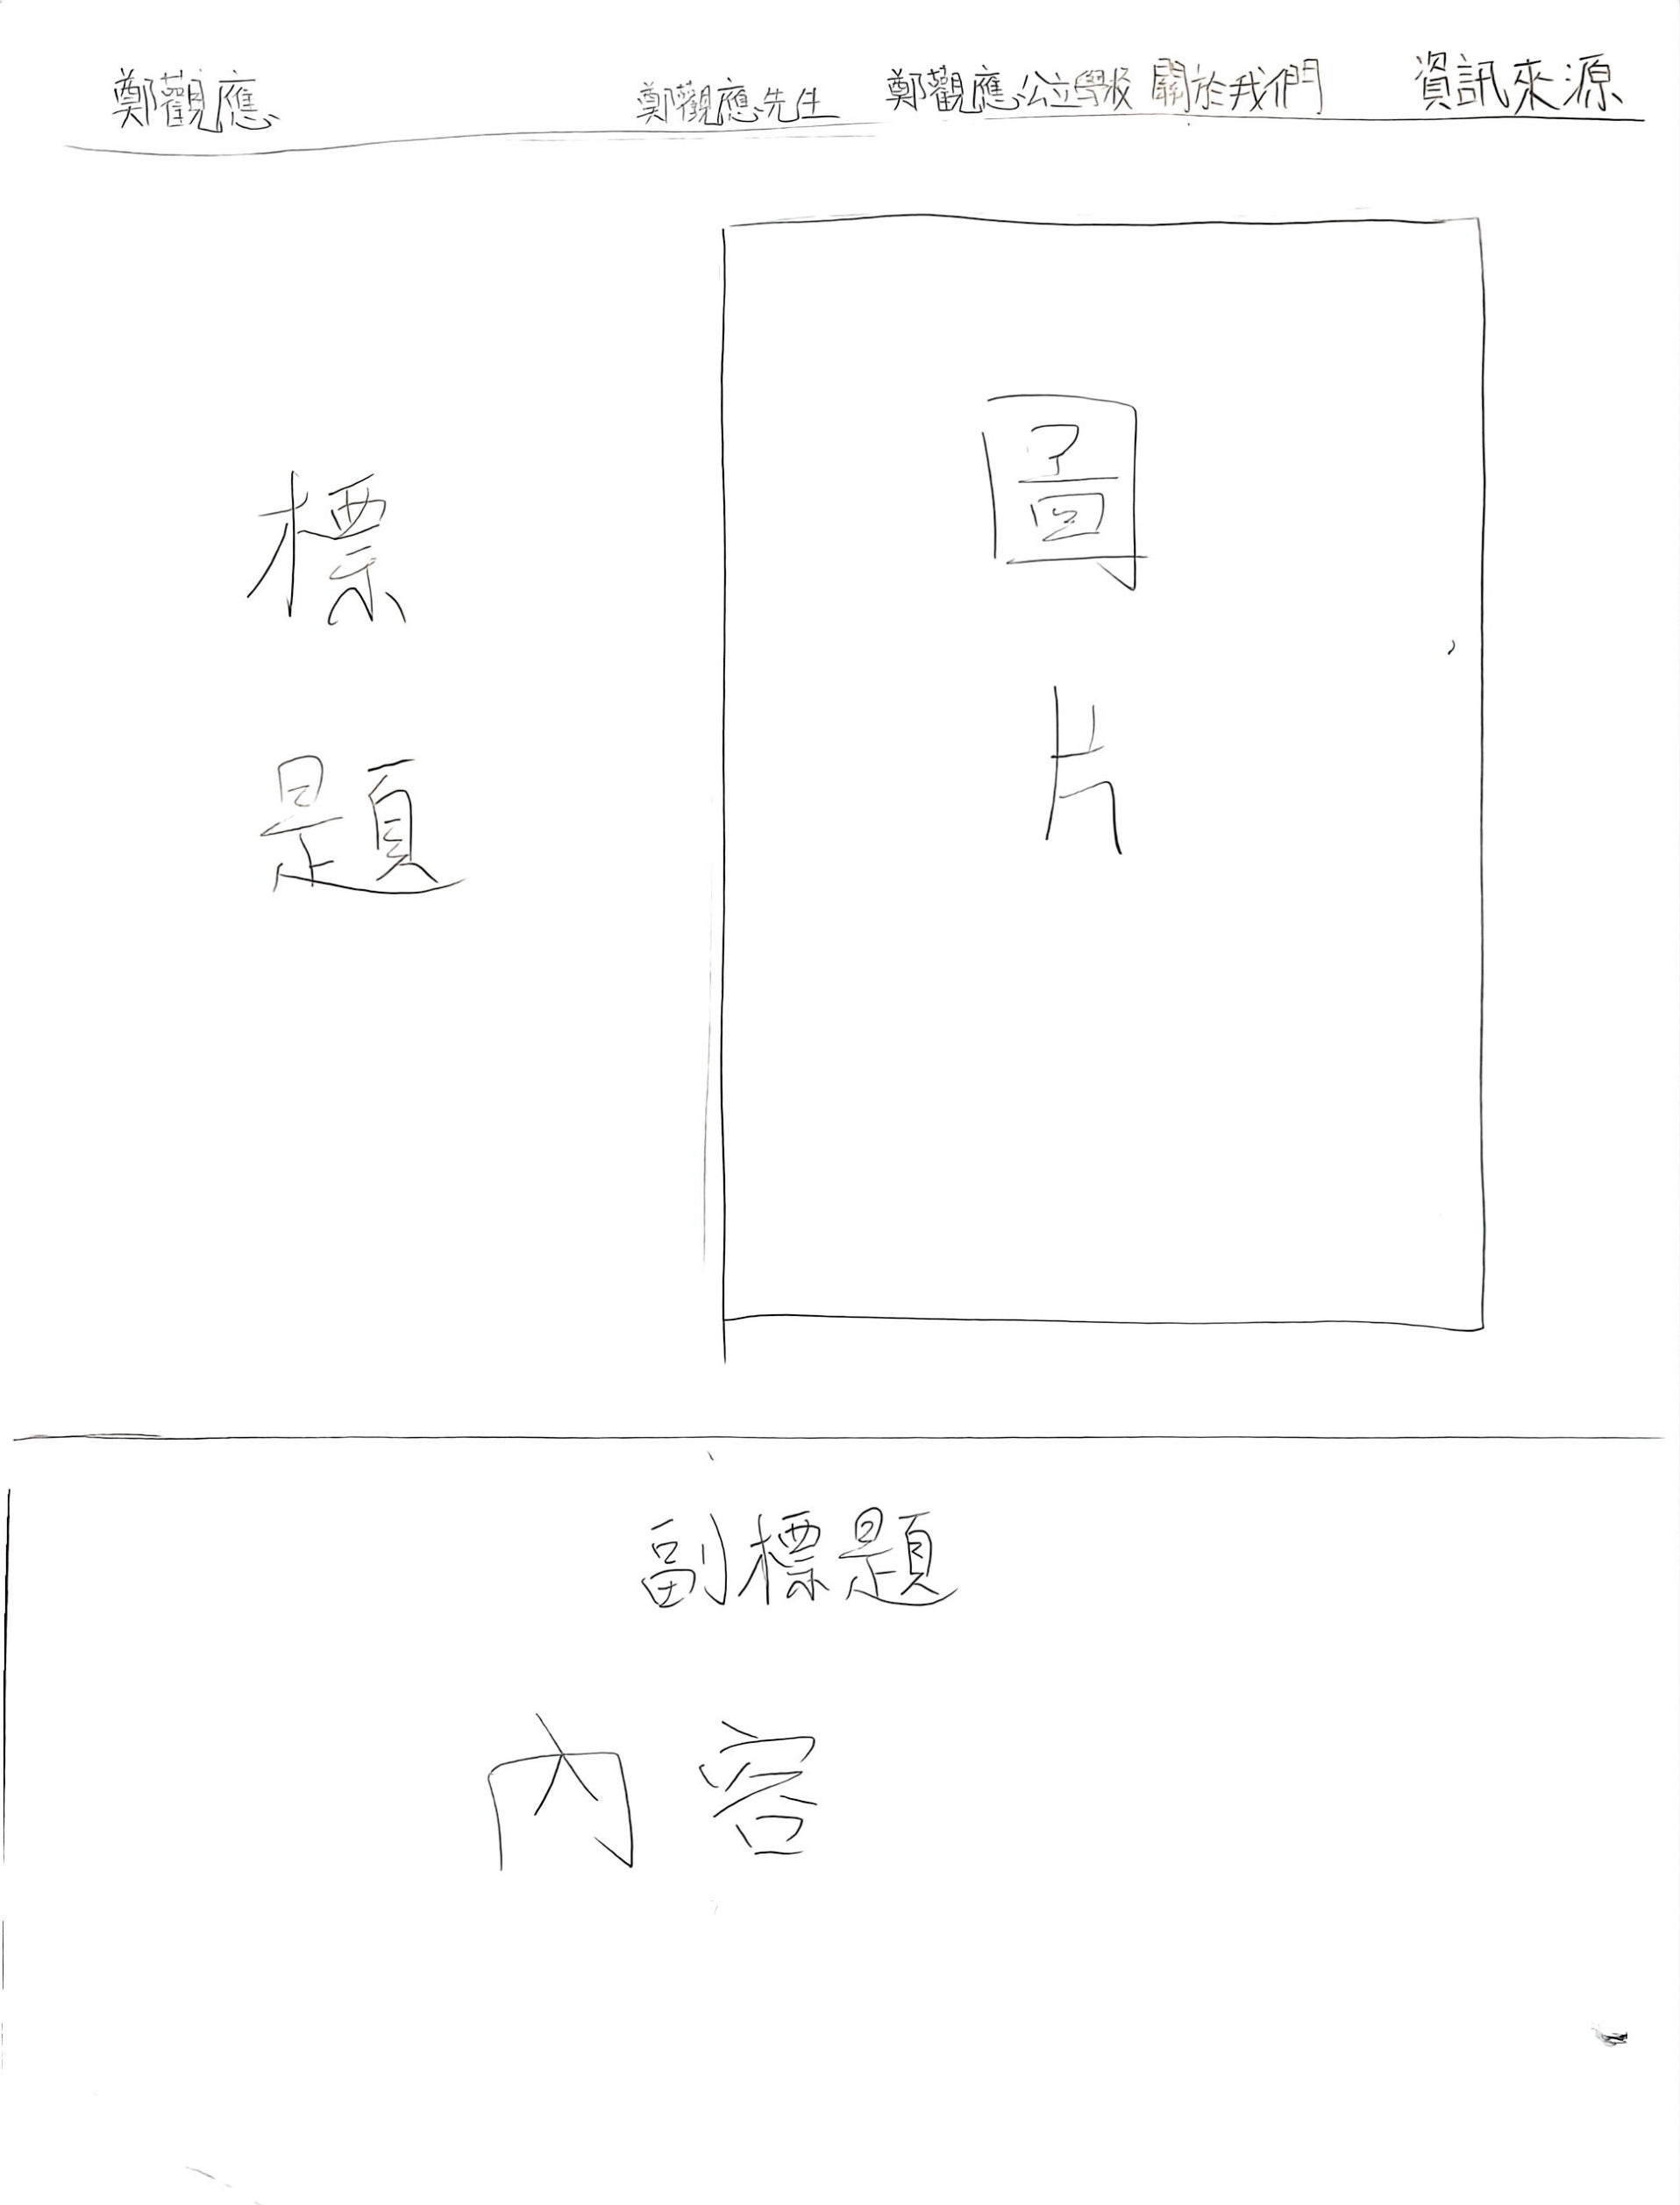 鄭觀應 鄭觀應先生 鄭觀應公立學校 關於我們 資訊來源
標
題
圖
片
副標題
內容